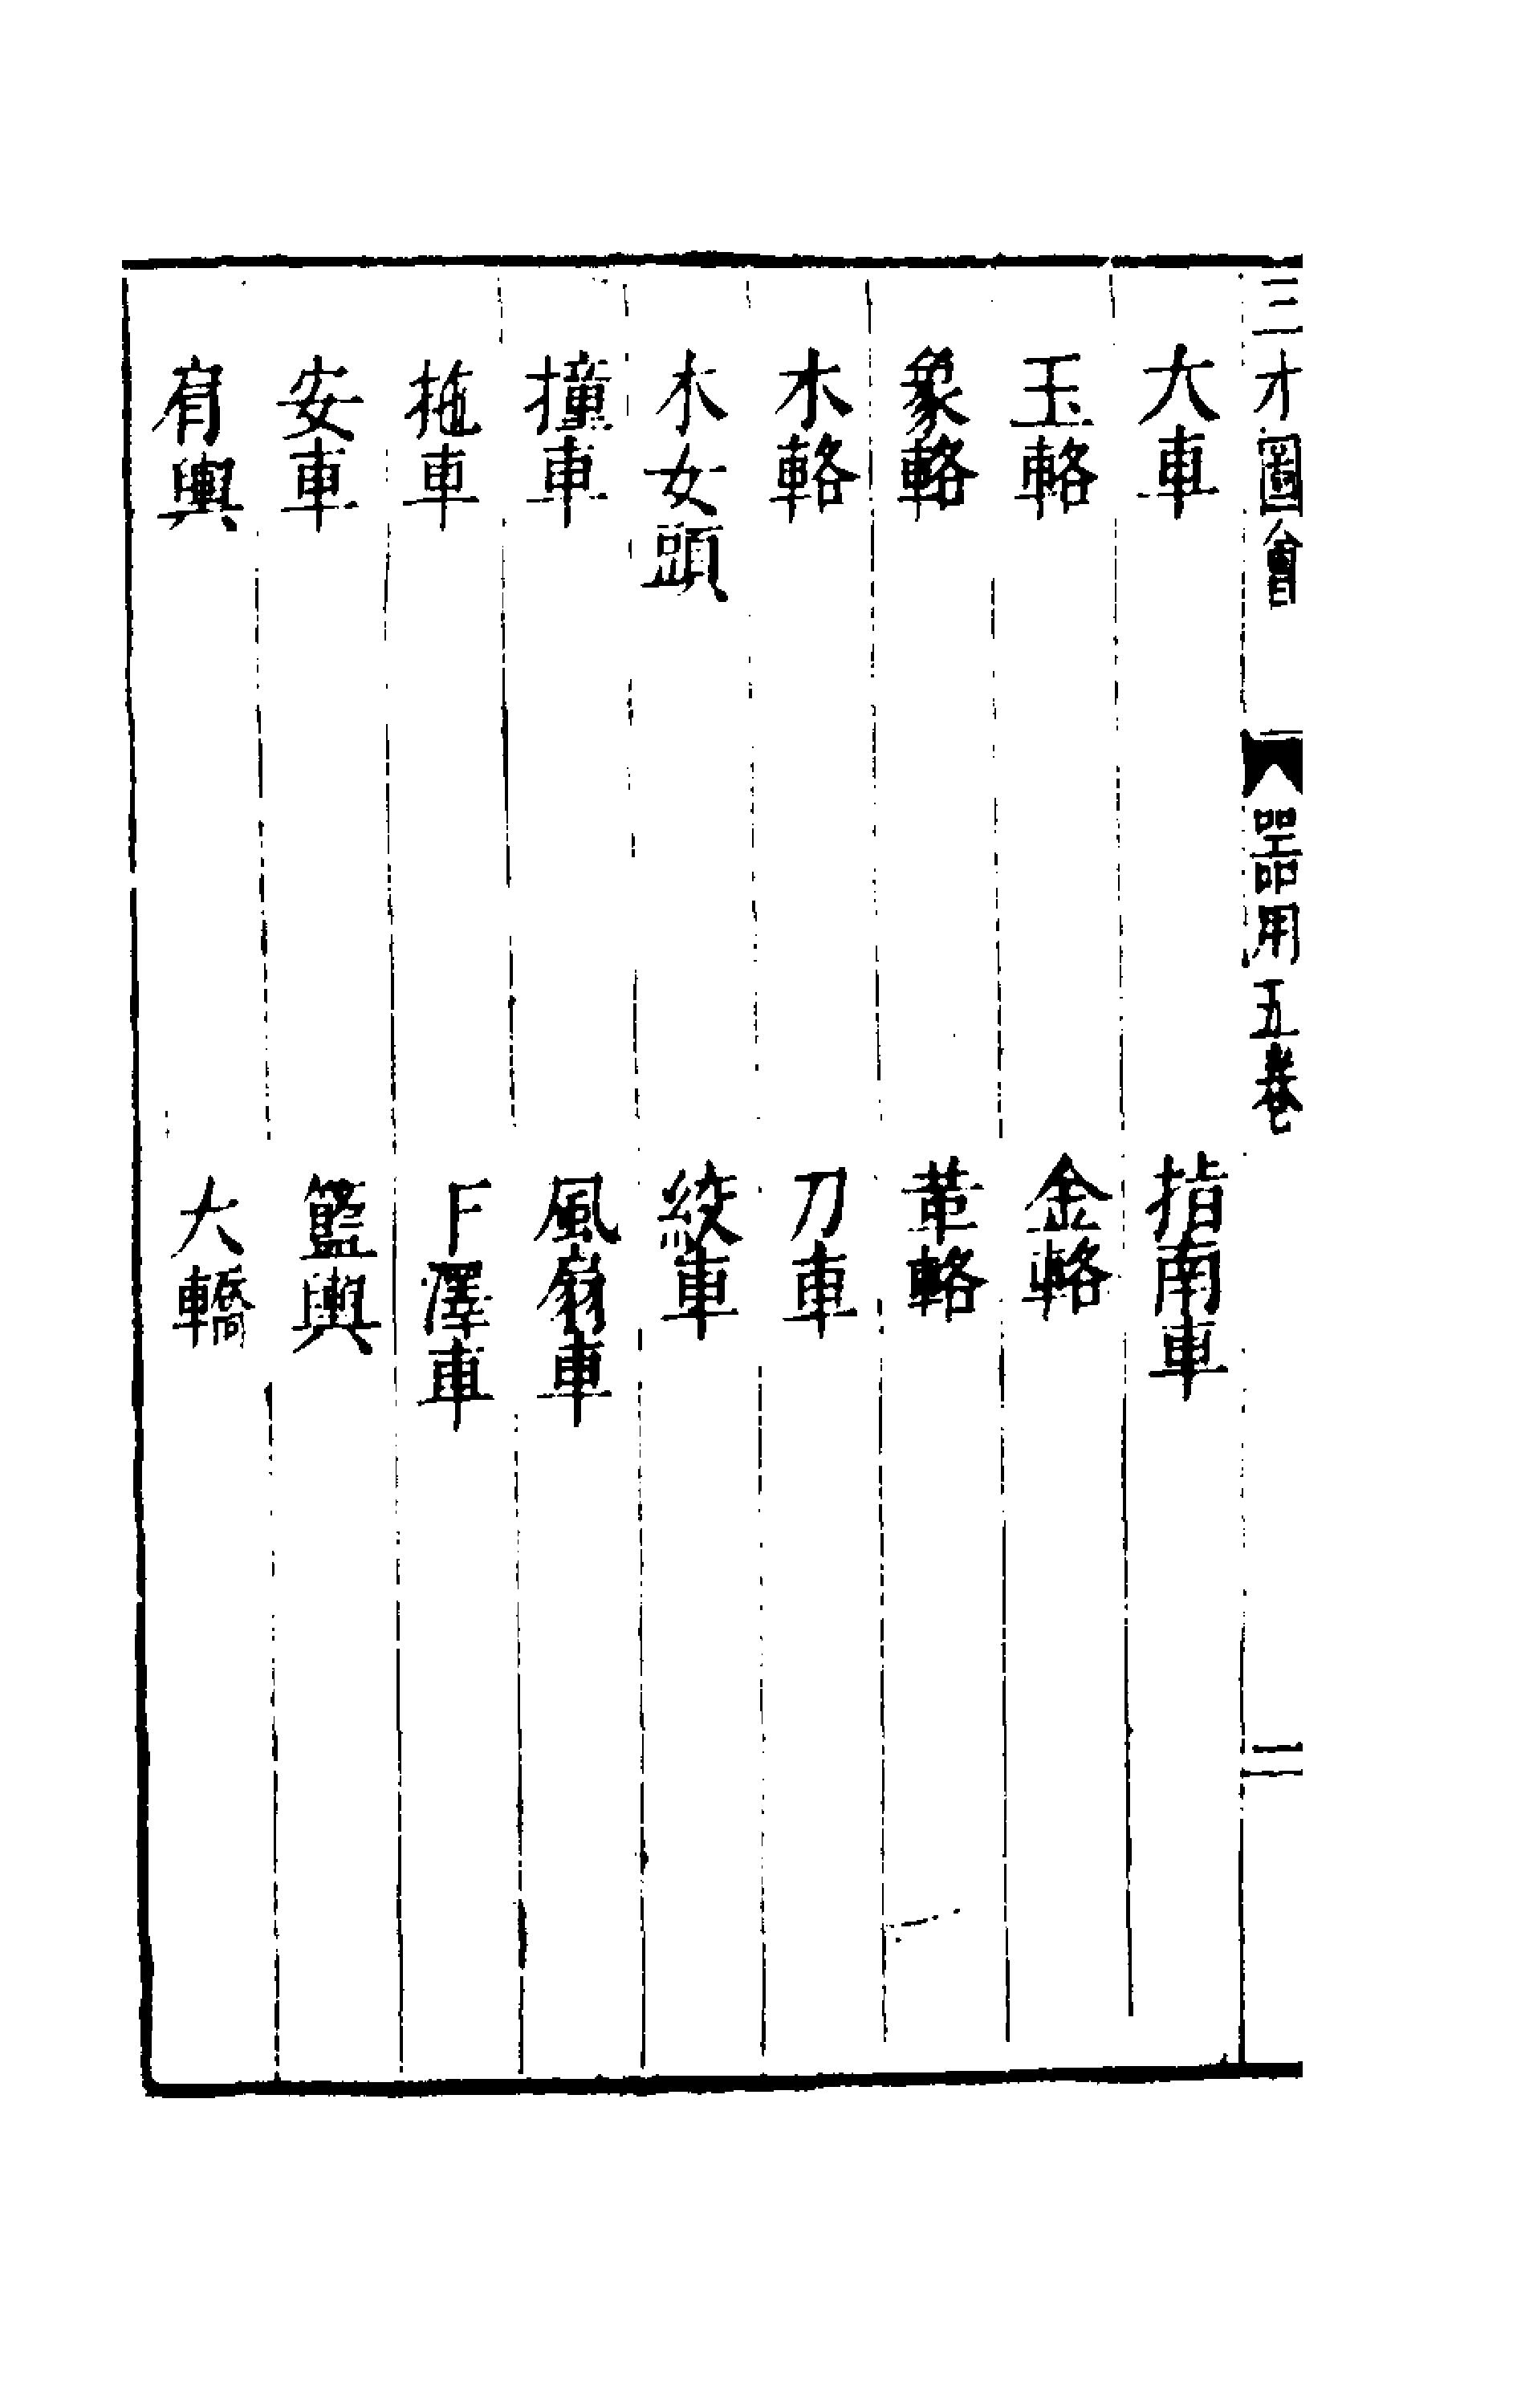 三才圖會 器用五卷 二
大車 指南車
玉輅 金輅
象輅 革輅
木輅 刀車
木女頭 絞車
撞車 風扇車
拖車 下澤車
安車 籃輿
肩輿 大轎